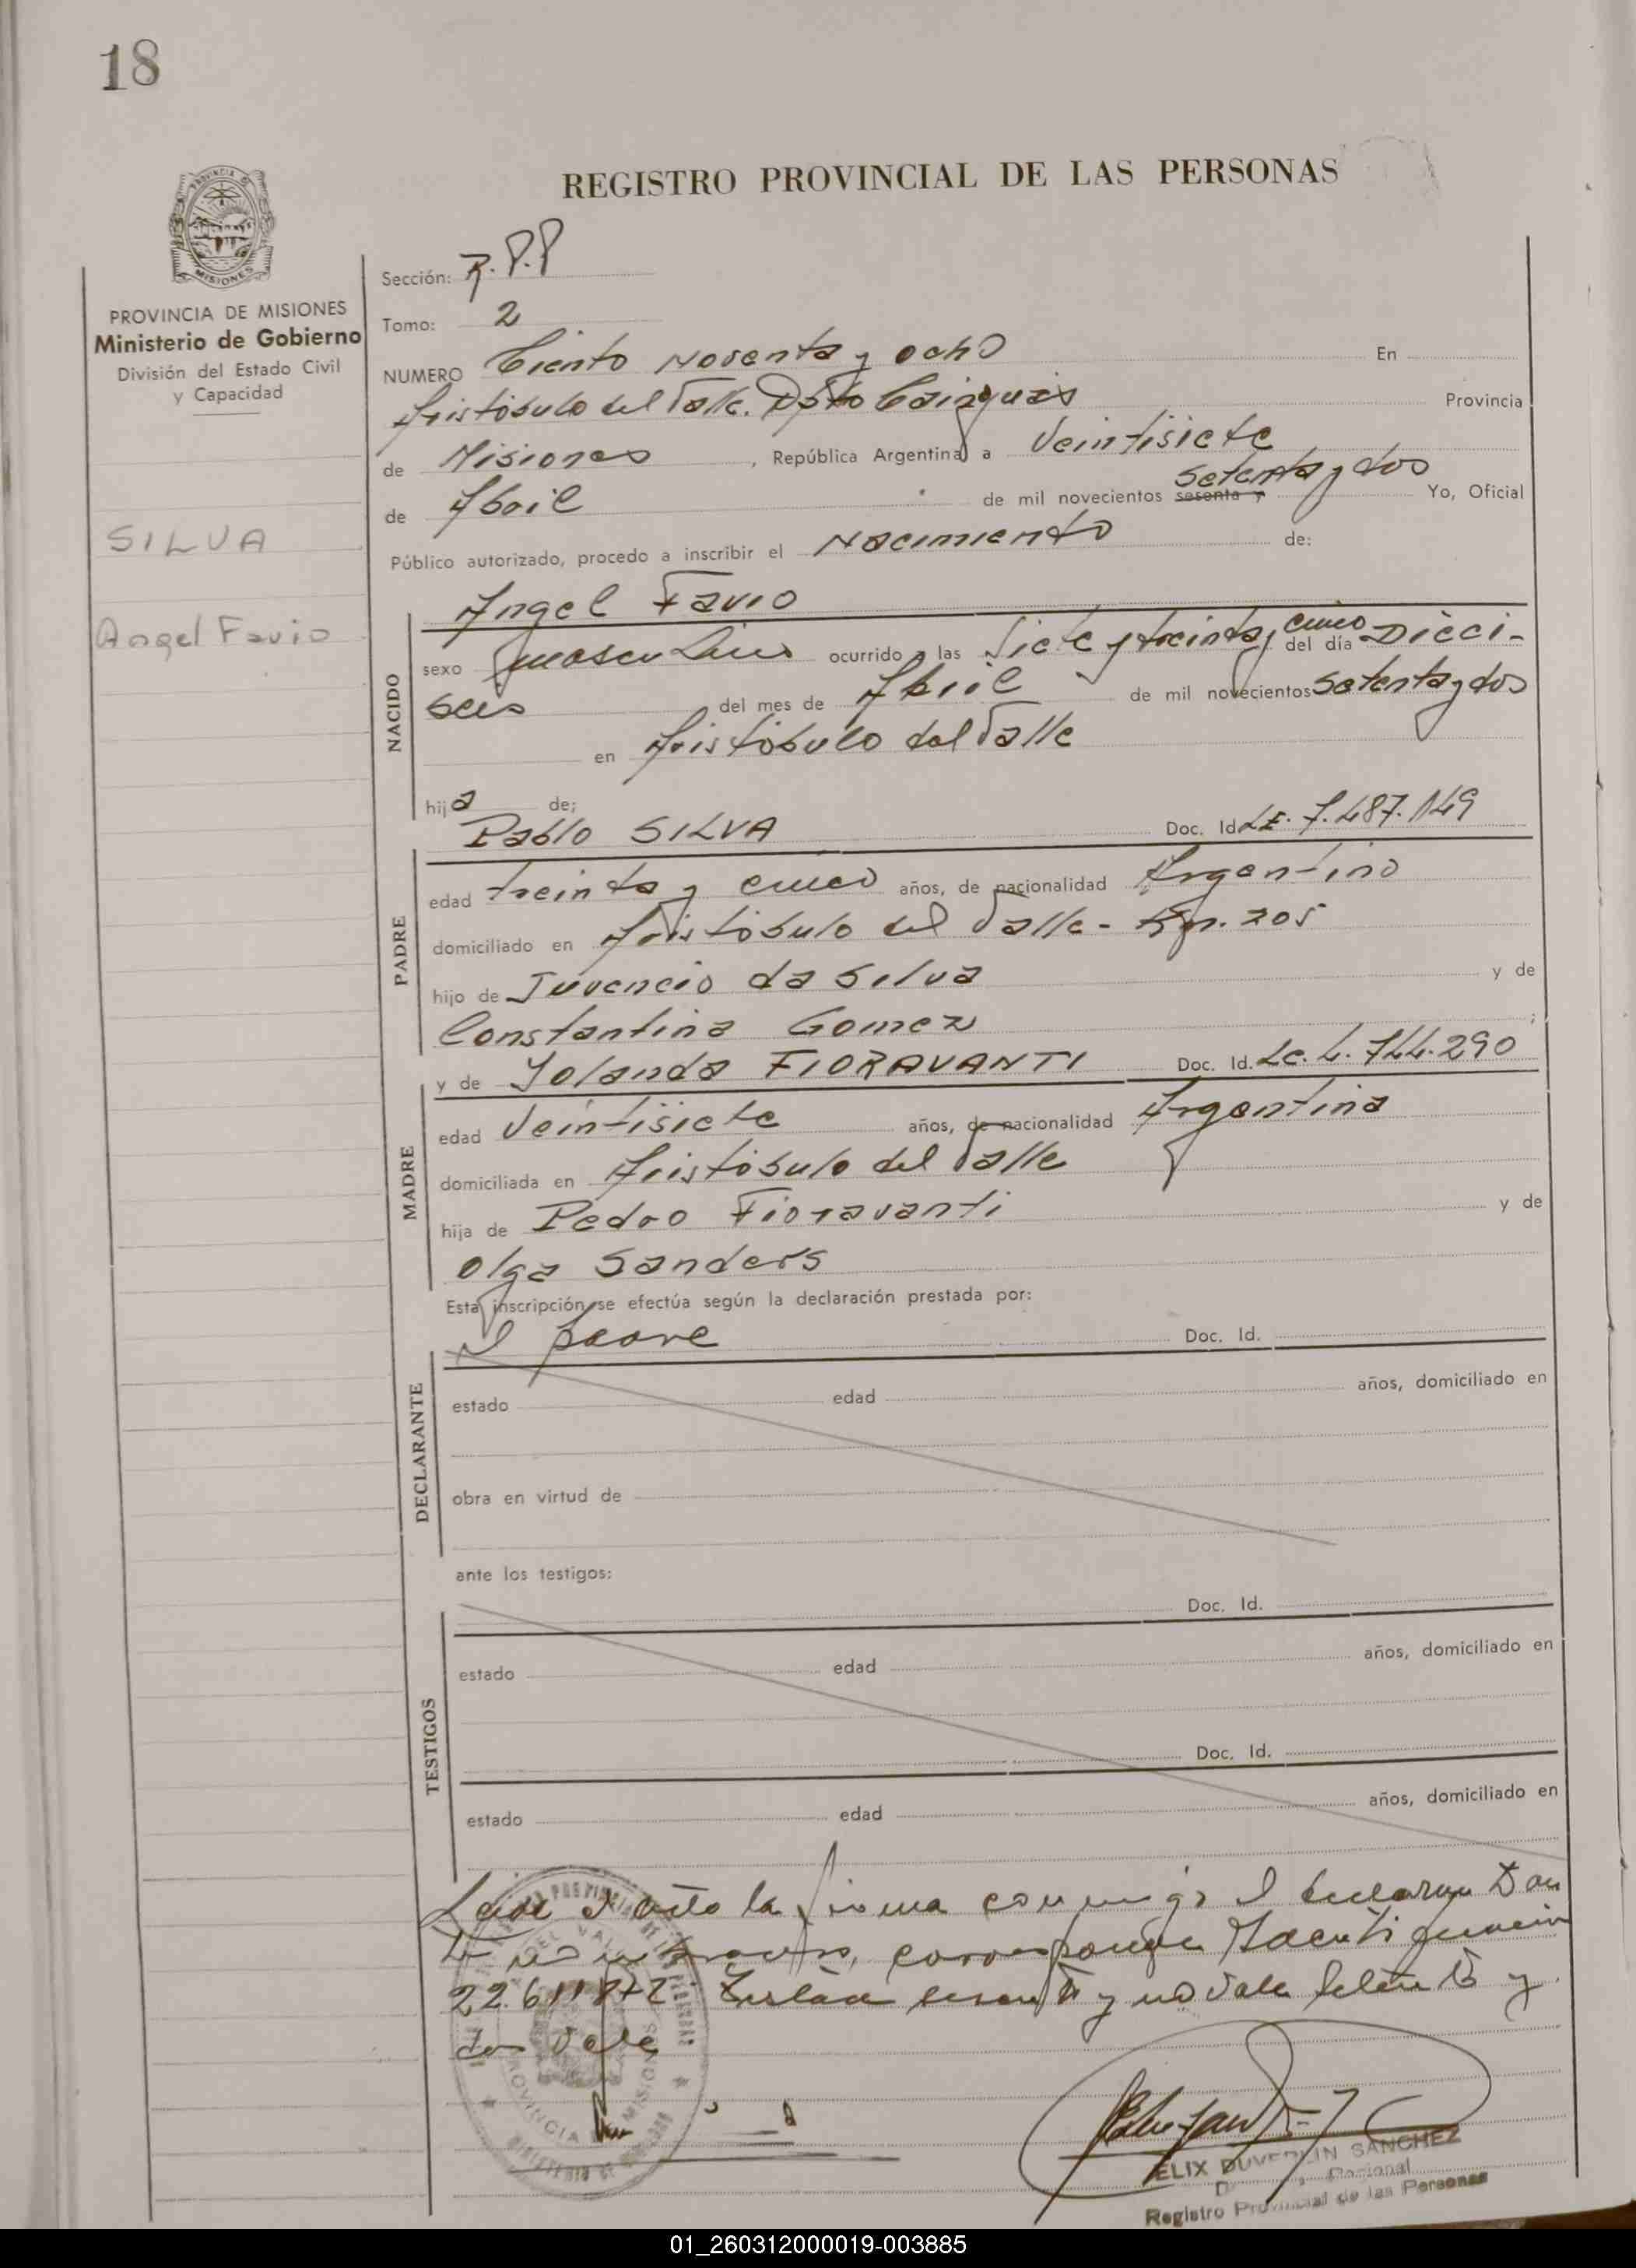 18
REGISTRO PROVINCIAL DE LAS PERSONAS
MISIONES
PROVINCIA DE MISIONES
Ministerio de Gobierno
División del Estado Civil
y Capacidad
SILVA
Angel Favio
Sección: R.P.P
Tomo: 2
NUMERO Ciento Noventa y ocho En
Aristóbulo del Valle. Dpto Cainguás Provincia
de Misiones, República Argentina a Veintisiete
de Abril de mil novecientos sesenta y setenta y dos Yo, Oficial
Público autorizado, procedo a inscribir el Nacimiento de:
NACIDO
Angel Favio
sexo masculino ocurrido a las Siete y treinta y cinco del día Dieci-
seis del mes de Abril de mil novecientos setenta y dos
en Aristóbulo del Valle
hija de;
PADRE
Pablo SILVA Doc. Id. LE. 7.487.149
edad treinta y cinco años, de nacionalidad Argentino
domiciliado en Aristóbulo del Valle - Km. 205
hijo de Juvencio da Silva y de
Constantina Gomez ;
MADRE
y de Yolanda FIORAVANTI Doc. Id. Lc. 4.744.290
edad Veintisiete años, de nacionalidad Argentina
domiciliada en Aristóbulo del Valle
hija de Pedro Fioravanti y de
Olga Sanders
Esta inscripción se efectúa según la declaración prestada por:
DECLARANTE
el padre Doc. Id.
estado edad años, domiciliado en
obra en virtud de
ante los testigos:
TESTIGOS
Doc. Id.
estado edad años, domiciliado en
Doc. Id.
estado edad años, domiciliado en
acto la firma conmigo el
22.611.872 sesenta y no vale setenta y
dos vale
ELIX DUVERLIN SANCHEZ
Registro Provincial de las Personas
01_260312000019-003885